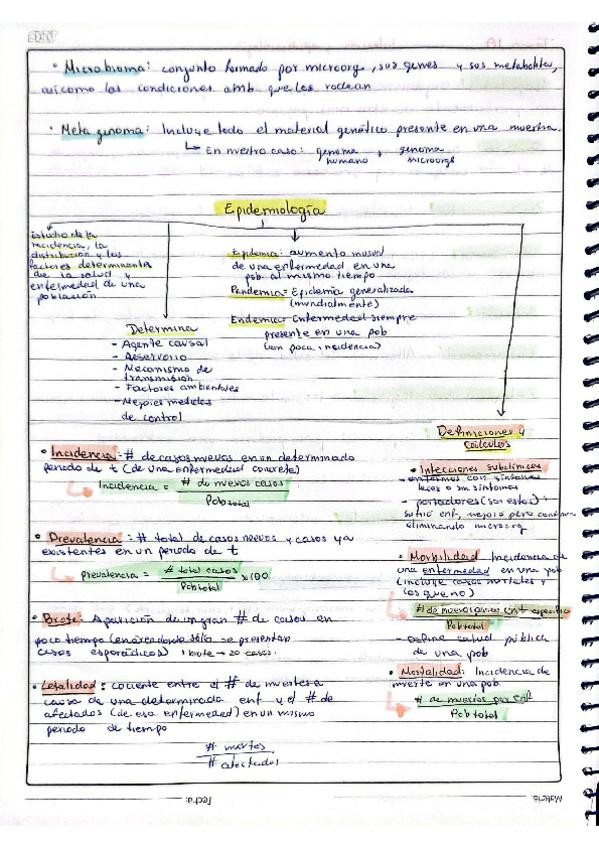 • Microbioma: conjunto formado por microorg, sus genes y sus metabolitos,
así como las condiciones amb. que los rodean
• Metagenoma: Incluye todo el material genético presente en una muestra.
↳ En nuestro caso: genoma humano + genoma microorgs
Epidemiología
Estudio de la
incidencia, la
distribución y los
factores determinantes
de la salud y
enfermedad de una
población
Determina
- Agente causal
- Reservorio
- Mecanismo de
transmisión
- Factores ambientales
- Mejores medidas
de control
Epidemia: aumento inusual
de una enfermedad en una
pob. al mismo tiempo
Pandemia = Epidemia generalizada
(mundialmente)
Endemia = Enfermedad siempre
presente en una pob
(con poca incidencia)
Definiciones y
cálculos
• Incidencia: # de casos nuevos en un determinado
periodo de t (de una enfermedad concreta)
Incidencia = # de nuevos casos
Pob total
• Prevalencia: # total de casos nuevos y casos ya
existentes en un periodo de t
prevalencia = # total casos x100
Pob total
• Brote: Aparición de un gran # de casos en
poco tiempo (en área donde sólo se presentan
casos esporádicos) 1 brote → 20 casos.
• Letalidad: cociente entre el # de muertes a
causa de una determinada enf y el # de
afectados (de esa enfermedad) en un mismo
periodo de tiempo
# muertos
# afectados
• Infecciones subclínicas
- enfermos con síntomas
leves o sin síntomas
- portadores (sanos)
sufrió enf, mejoró pero continúa
eliminando microorg
• Morbilidad: Incidencia de
una enfermedad en una pob
(incluye casos mortales y
los que no)
# de nuevos casos en t específico
Pob total
- Define salud pública
de una pob
• Mortalidad: Incidencia de
muerte en una pob.
# de muertos por enf
Pob total
Fecha:
Materia